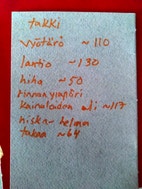 takki
vyötärö ~110
lantio ~130
hiha ~50
rinnanympäri
kainaloiden alt ~117
niska-helma
takaa ~64